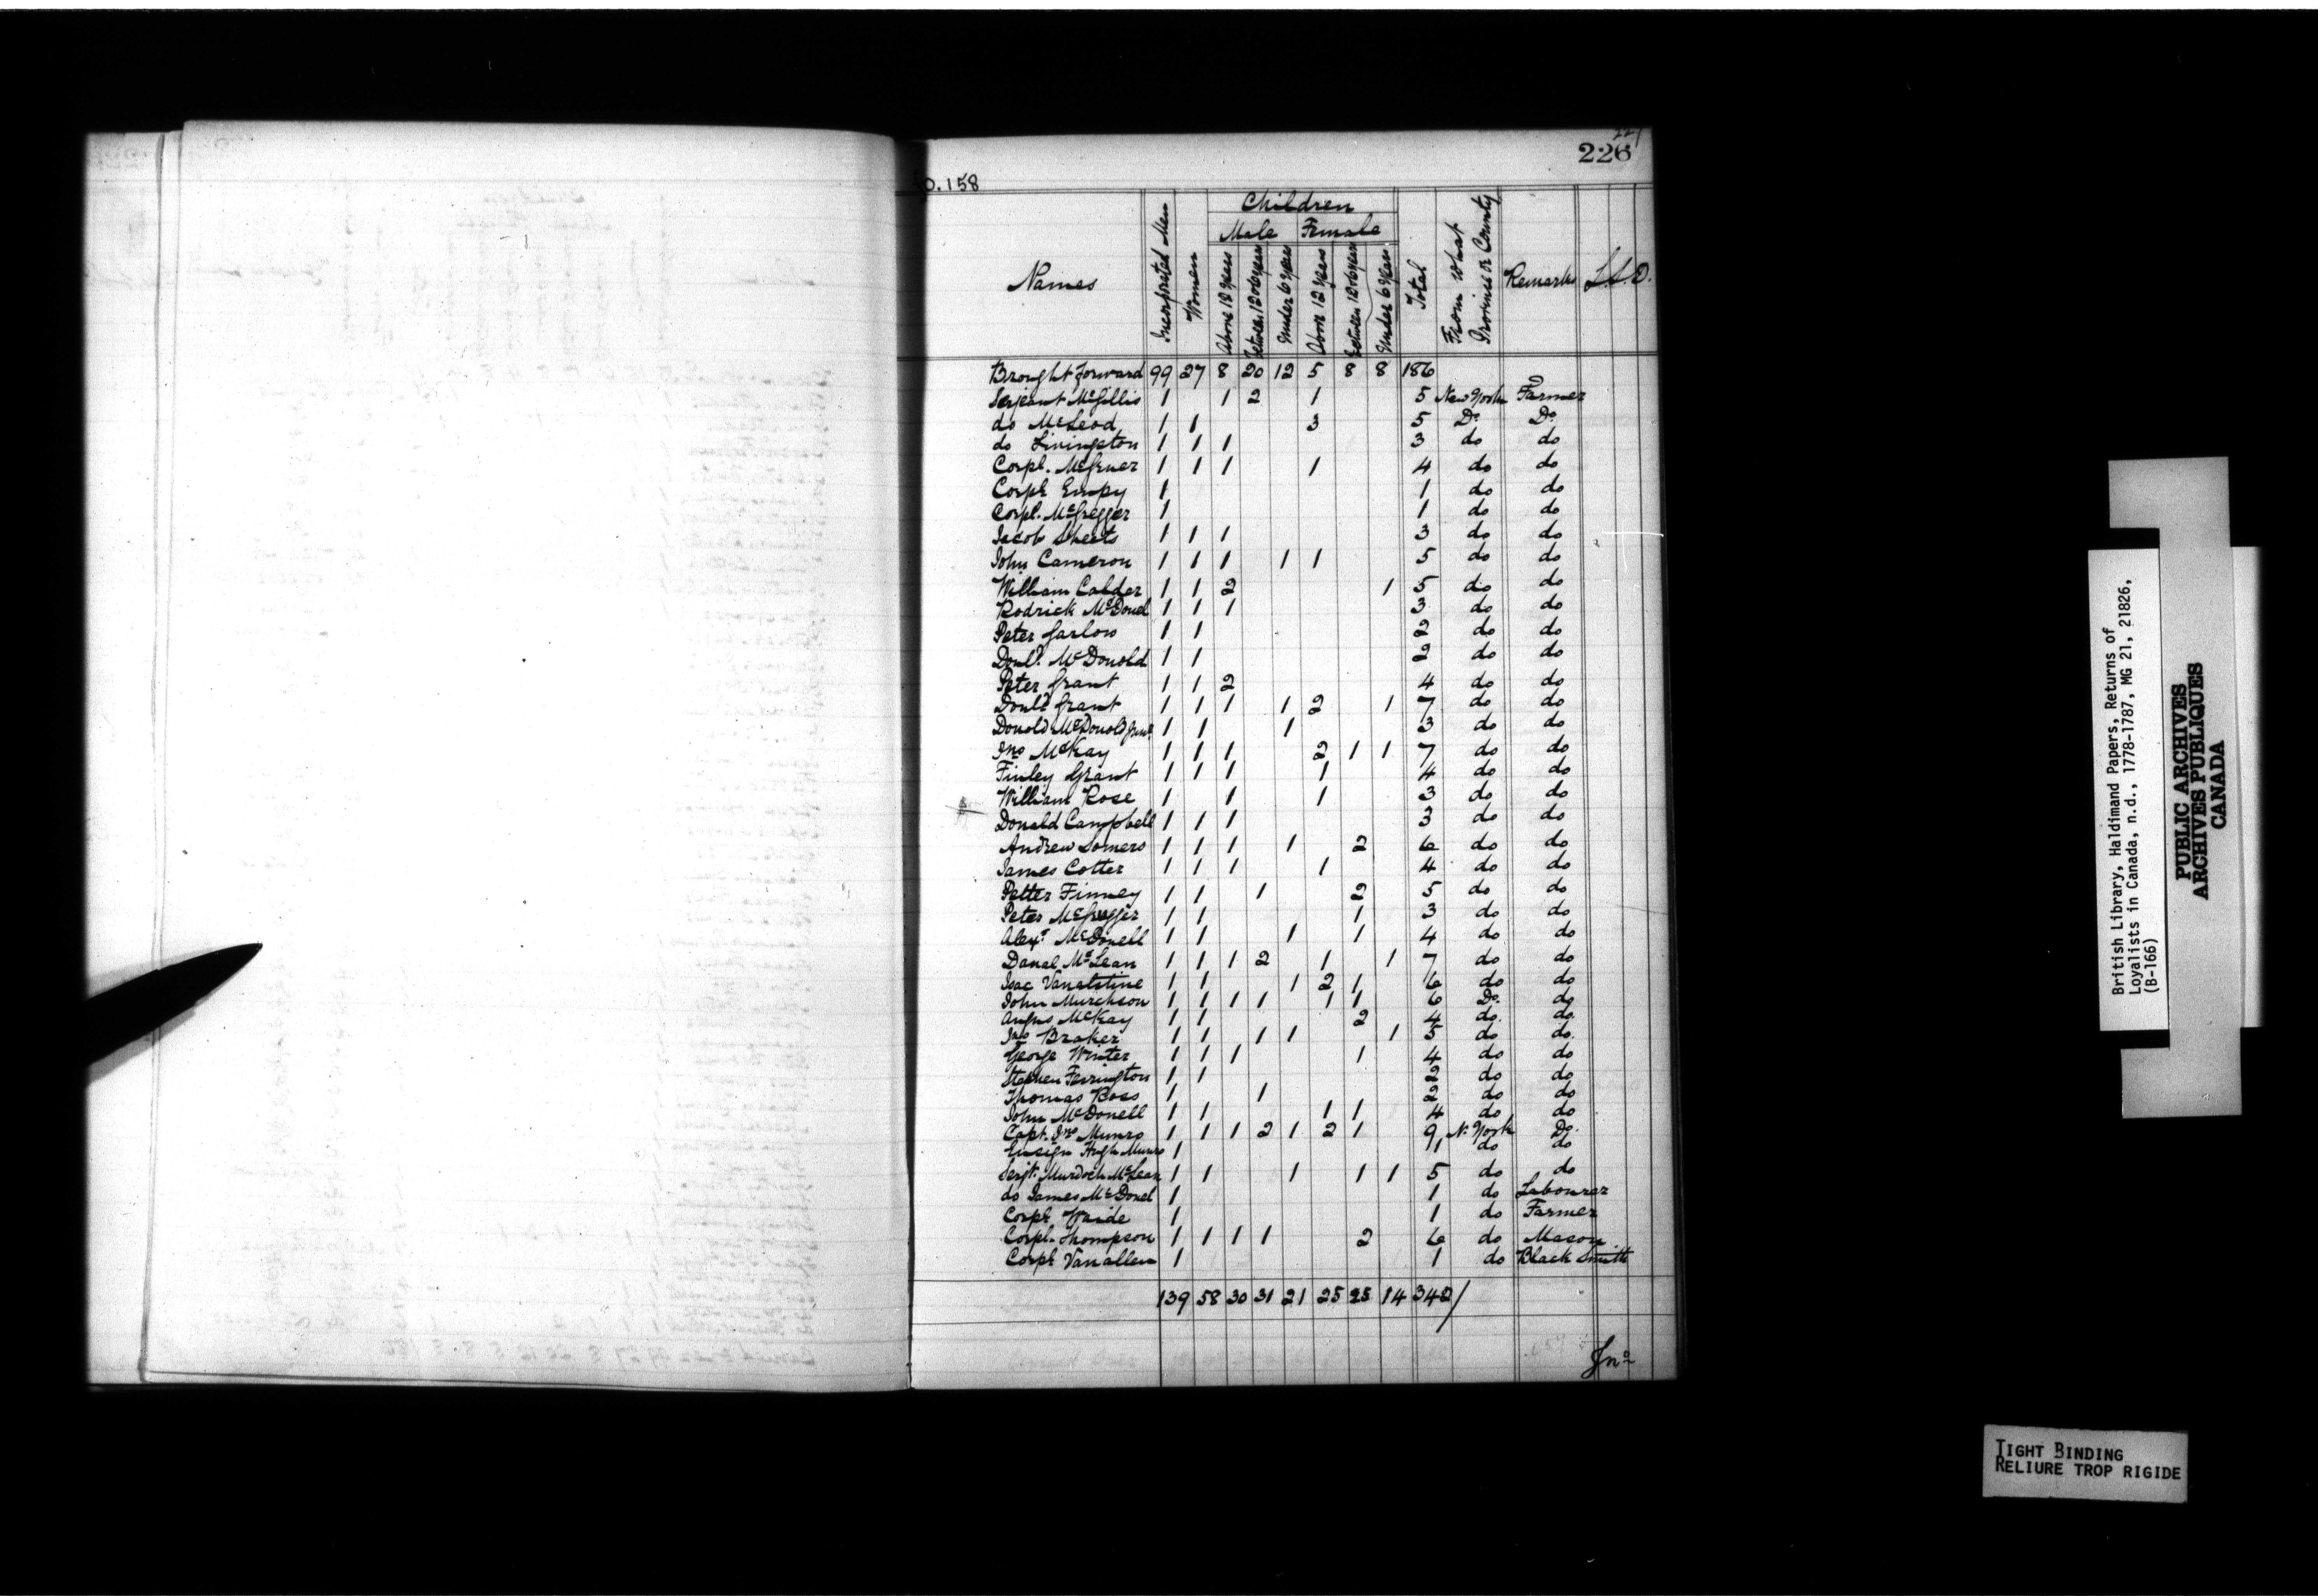 226
fo. 158
Names
Incorporated Men
Women
Children
Male Female
Above 12 Years
Between 12 & 6 years
Under 6 years
Above 12 years
Between 12 & 6 years
Under 6 years
Total
From What Province or County
Remarks
L.S.D.
Brought forward 99 27 8 20 12 5 8 8 186
Serjeant McGillis 1 1 2 1 5 New York Farmer
do McLeod 1 1 3 5 Do. Do.
do Livingston 1 1 1 3 do do
Corpl. 1 1 1 1 4 do do
Corpl. Empy 1 1 do do
Corpl. McGregger 1 1 do do
Jacob Sheets 1 1 1 3 do do
John Cameron 1 1 1 1 1 5 do do
William Calder 1 1 2 1 5 do do
Rodrick McDonel 1 1 1 3 do do
Peter Garlow 1 1 2 do do
Donld. McDonold 1 1 2 do do
Peter Grant 1 1 2 4 do do
Donld. Grant 1 1 1 1 2 1 7 do do
Donold McDonold Junr. 1 1 1 3 do do
Jno McKay 1 1 1 2 1 1 7 do do
Finley Grant 1 1 1 1 4 do do
William Rose 1 1 1 3 do do
Donald Campbell 1 1 1 3 do do
Andrew Somers 1 1 1 1 2 6 do do
James Cotter 1 1 1 1 4 do do
Petter Finney 1 1 1 2 5 do do
Peter McGregger 1 1 1 3 do do
Alexr. McDonell 1 1 1 1 4 do do
Danal McLean 1 1 1 2 1 1 7 do do
Isac Vanalstine 1 1 1 2 1 6 do do
John Murchson 1 1 1 1 1 1 6 Do. do
Angus McKay 1 1 2 4 do. do.
Jno Braker 1 1 1 1 1 5 do do.
George Winter 1 1 1 1 4 do do
Stephen Ferrington 1 1 2 do do
Thomas Ross 1 1 2 do do
John McDonell 1 1 1 1 4 do do
Capt. Jno Munro 1 1 1 2 1 2 1 9 N. York Do.
Ensign Hugh Munro 1 1 do do
Serjt. Murdoch McLean 1 1 1 1 1 5 do do
do James McDonel 1 1 do Labourer
Corpl. Waide 1 1 do Farmer
Corpl. Thompson 1 1 1 1 2 6 do Mason
Corpl. Vanallen 1 1 do Black Smith
139 58 30 31 21 25 25 14 342/
Jno
British Library, Haldimand Papers, Returns of
Loyalists in Canada, n.d., 1778-1787, MG 21, 21826,
(B-166)
PUBLIC ARCHIVES
ARCHIVES PUBLIQUES
CANADA
TIGHT BINDING
RELIURE TROP RIGIDE